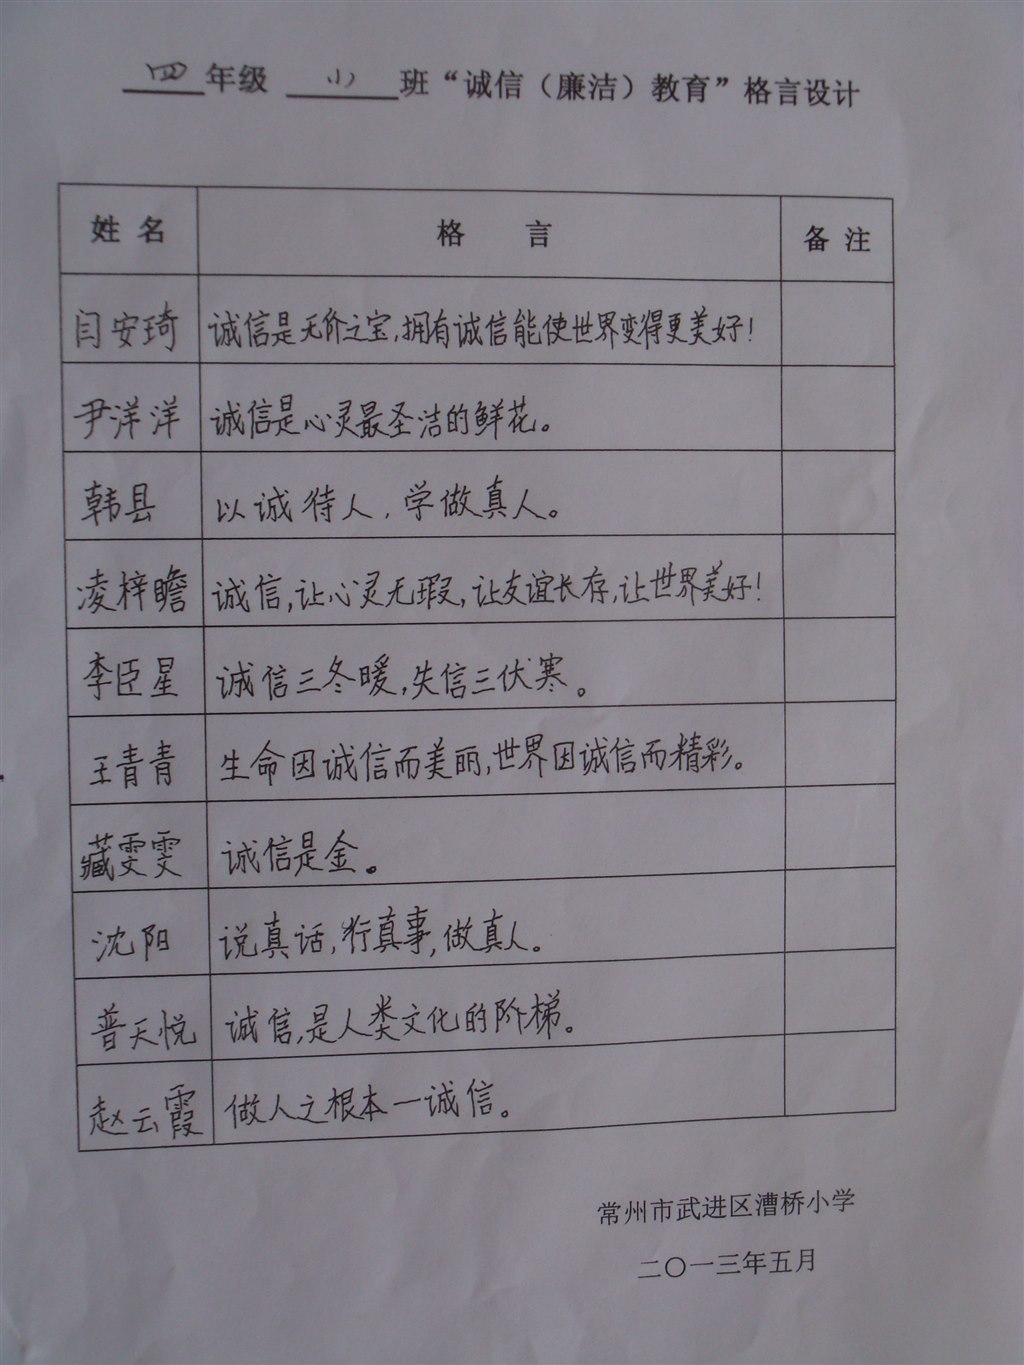 四年级 小 班“诚信（廉洁）教育”格言设计
姓 名 格 言 备 注
闫安琦 诚信是无价之宝,拥有诚信能使世界变得更美好!
尹洋洋 诚信是心灵最圣洁的鲜花。
韩县 以诚待人,学做真人。
凌梓瞻 诚信,让心灵无瑕,让友谊长存,让世界美好!
李臣星 诚信三冬暖,失信三伏寒。
王青青 生命因诚信而美丽,世界因诚信而精彩。
藏雯雯 诚信是金。
沈阳 说真话,行真事,做真人。
普天悦 诚信,是人类文化的阶梯。
赵云霞 做人之根本一诚信。
常州市武进区漕桥小学
二〇一三年五月